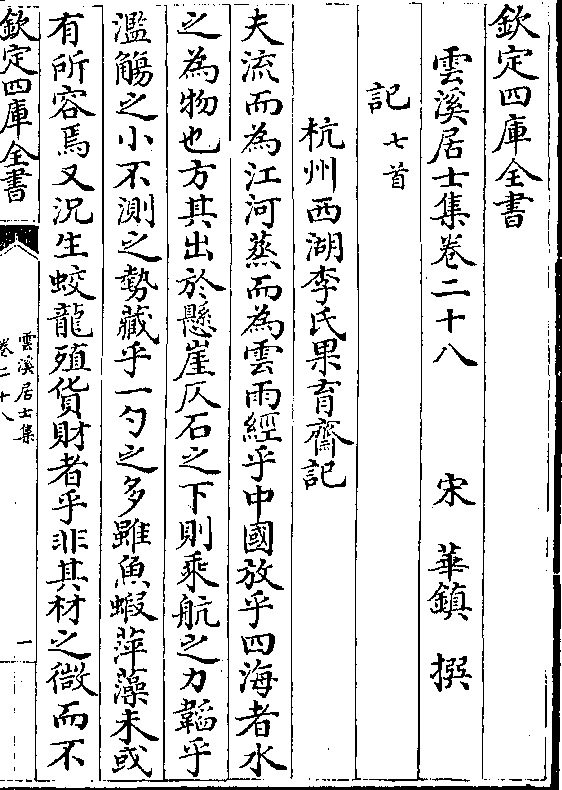 欽定四庫全書
雲溪居士集卷二十八 宋 華鎮 撰
記七首
杭州西湖李氏果育齋記
夫流而為江河蒸而為雲雨經乎中國放乎四海者水
之為物也方其出於懸崖仄石之下則乘航之力韜乎
濫觴之小不測之勢藏乎一勺之多雖魚蝦萍藻未或
有所容焉又況生蛟龍殖貨財者乎非其材之微而不
欽定四庫全書
雲溪居士集
卷二十八
一